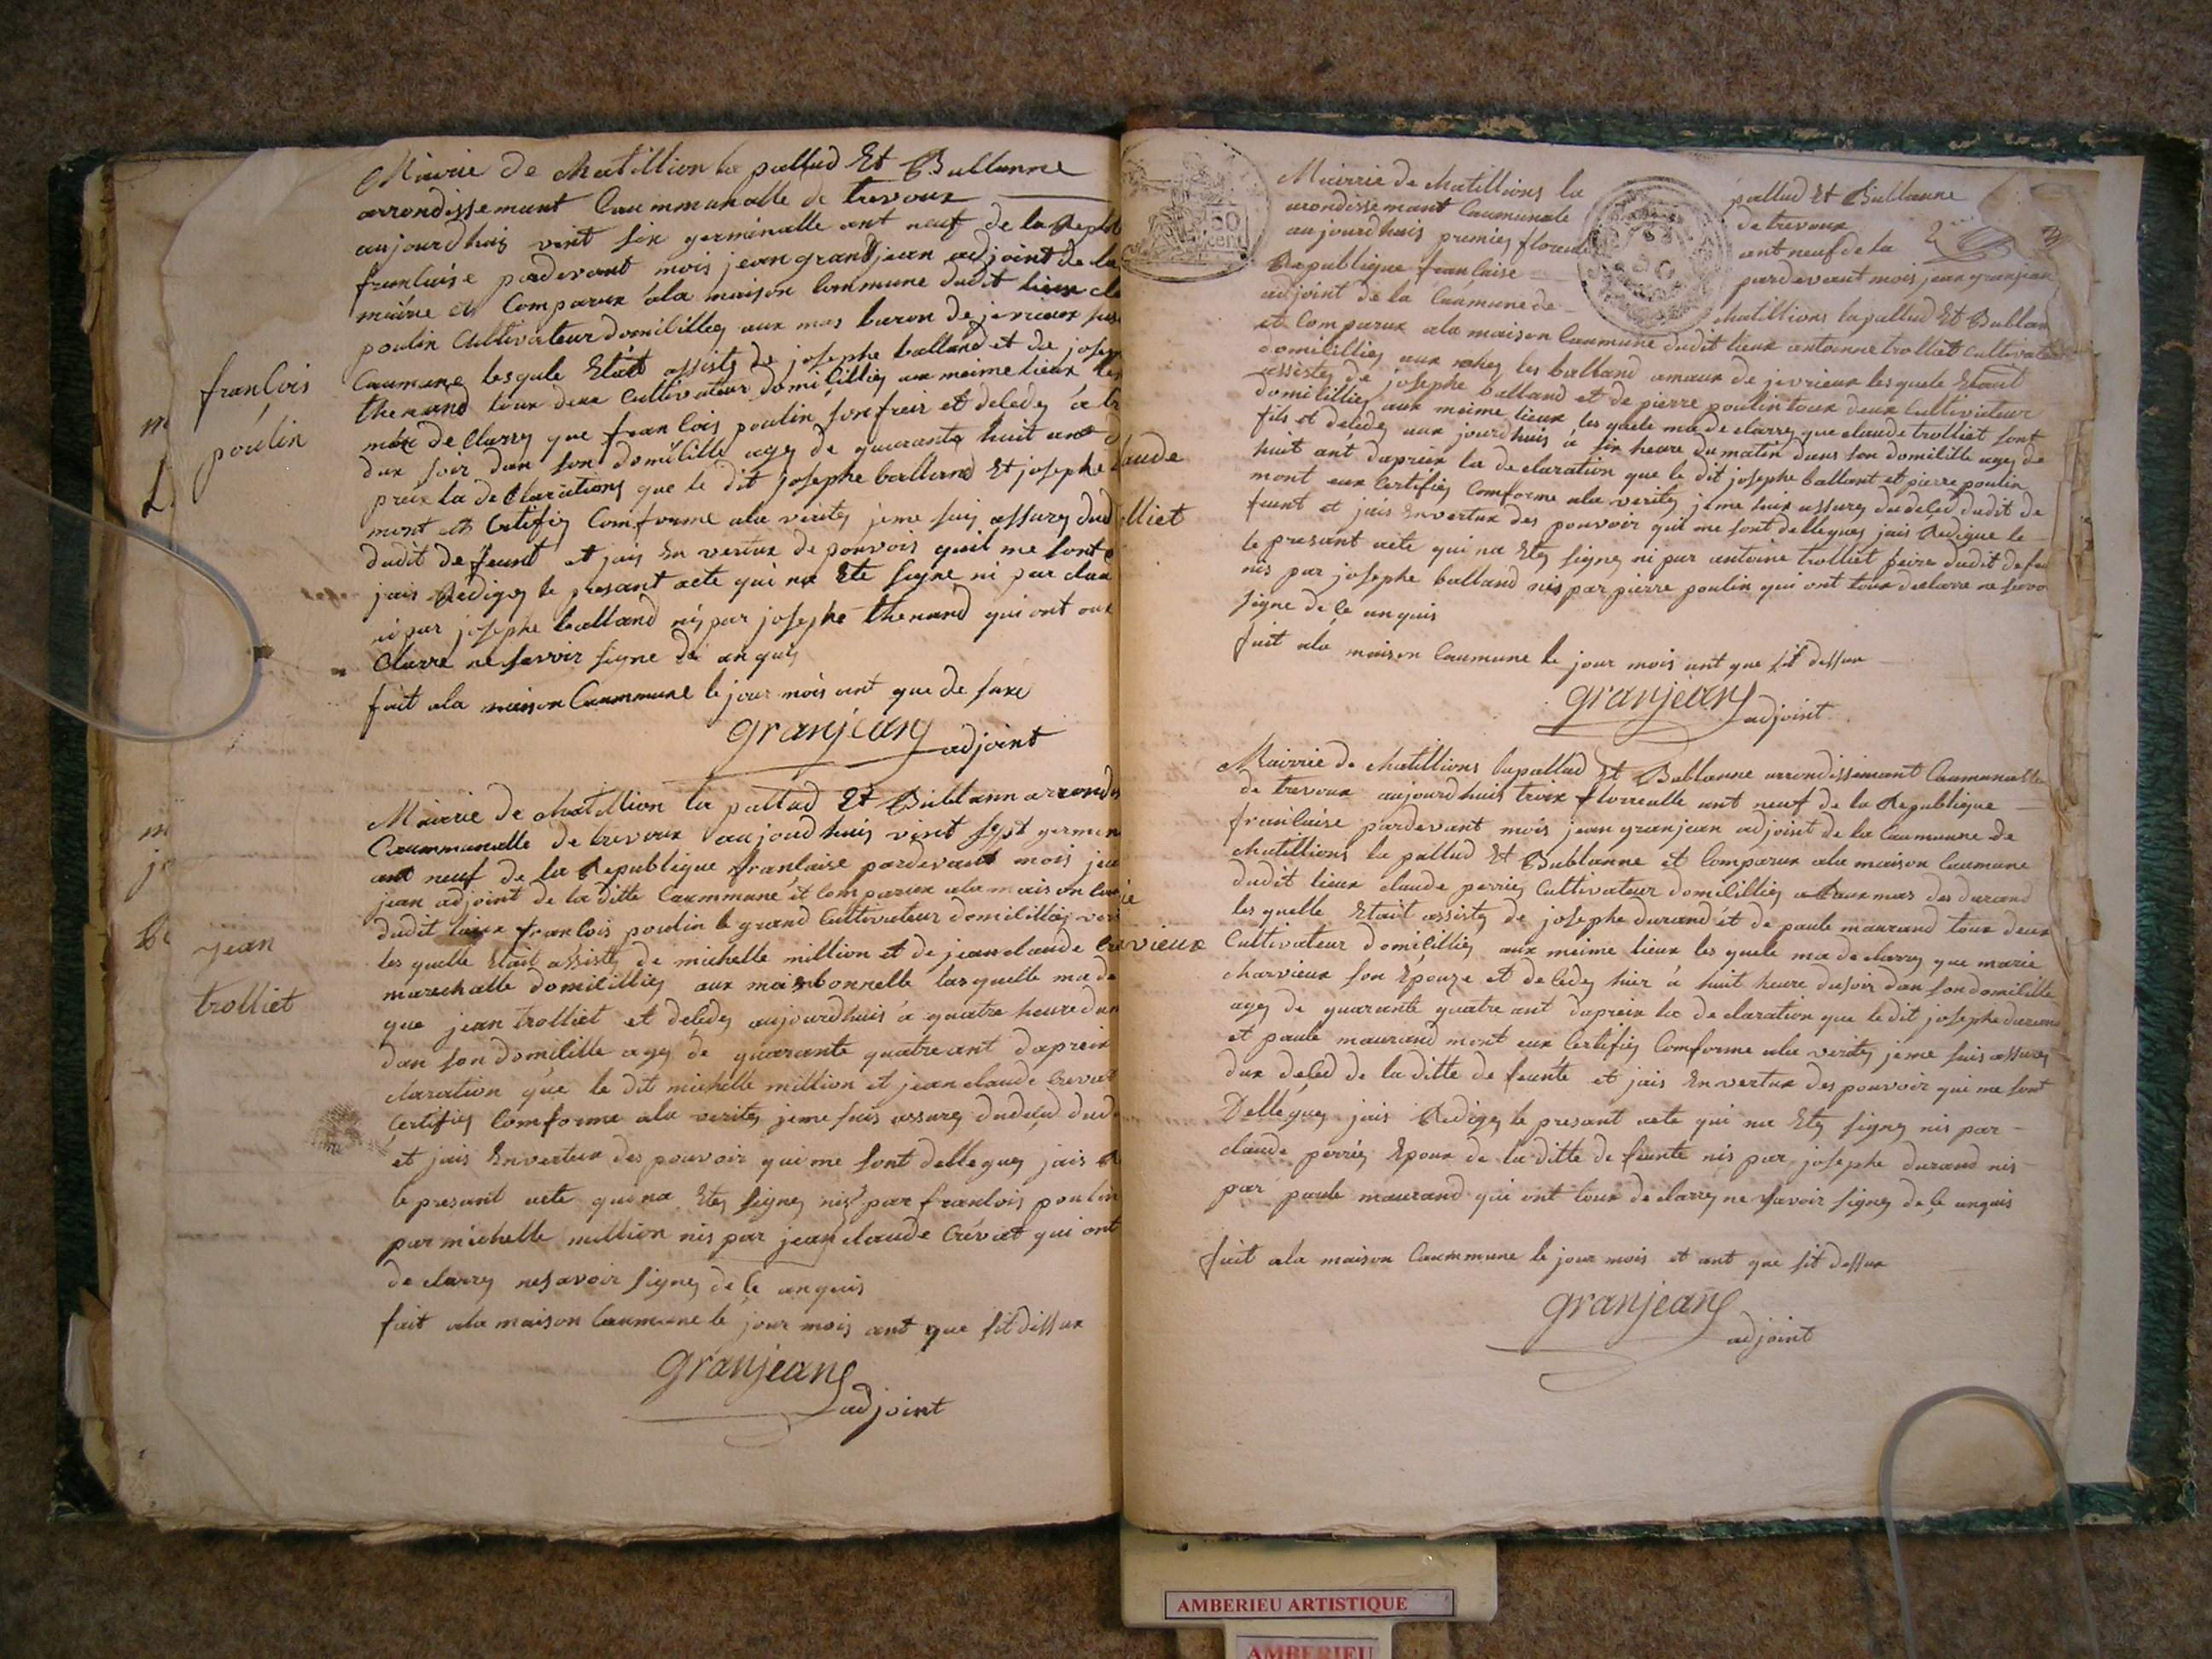 Mairie de chatillion la pallud Et Bullanne
arrondissemant Caummunalle de trevoux
aujourdhuis vint six germinalle ant neuf de la Repbl
franlaise pardevant mois jean grantjean adjoint de la
mairie et Comparux a la maison Commune dudit lieux cla
poulin Cultivateur domililliey aux mas buron de jevrieux sus
Caumune lesquele Etait assiste de josephe balland et de josep
thenand toux deux Cultivateur domililliey au meime lieux les
max de Clarrey que franlois poulin son freir et deledey a
dux soir dan son domilille agey de quarante huit ant d
preix la de Clarations que le dit josephe balland Et josephe
mont et Certifiey Comforme ala veritey jeme suis assurey dud
dudit defeunt et jais En vertux de pouvoir quil me sont
jais Redigey le presant acte qui na Ete signe ni par clau
ni par josephe balland nis par josephe thenand qui ont oux
Clarré ne savoir signe de anquis
fait ala maison Caummune le jour mois ant que de suxe
granjean
adjoint
françois
poulin
Mairie de chatillion la pallud Et Bublann arrondis
Caummunalle de trevoux aujoudhuis vint sept germin
ant neuf de la Republique franlaise pardevant mois jea
jean adjoint de la ditte Caummune et Comparux ala maison Cau
dudit lieux franlois poulin le grand Cultivateur domililliey vers
les quelle Etait assistey de michelle million et de jean claude Cre
marechalle domililliey aux maisbonnelle lasquelle ma de
que jean trolliet et deledey aujourdhuis a quatre heure dux
dan son domilille agey de quarante quatre ant dapreix
claration que le dit michelle million et jean claude Crevat
Certifiey Comforme ala veritey jeme suis assurey dudeled dud
et jais Envertux des pouvoir qui me sont delleguey jais R
le presant acte quina Etey signey nis par franlois poulin
par michelle million nis par jean claude Crévat qui ont
de clarrey nesavoir signey dele anquis
fait ala maison Caumune le jour mois ant que sit dessux
granjean
adjoint
jean
trolliet
Mairrie de chatillions la pallud Et Bullanne
arondissemant Caumunale de trevoux
aujourdhuis premiey floreal ant neuf de la
Republique franlaise pardevant mois jean granjean
adjoint de la Caumune de chatillions lapallud Et Bublan
et Comparux ala maison Caumune dudit lieux antoinne trolliet Cultivate
domililliey aux les balland amaux de jevrieux lesquele Etait
assistey de josephe balland et de pierre poulin toux deux Cultivateur
domililliey aux meime lieux les quele ma de clarrey que claude trolliet sont
fils et deledey aux jourdhuis a six heure dumatin dans son domilille agey de
huit ant dapreix la declaration que le dit josephe balland et pierre poulin
mont eux Certifiey Comforme ala veritey jeme suis assurey dudeled dudit de
feunt et jais Envertux des pouvoir qui me sont delleguey jais Redigue le
le presant acte qui na Etey signey ni par antoine trolliet peire dudit defeu
nis par josephe balland nis par pierre poulin qui ont toux declare ne savo
signe dele anquis
fait ala maison Caumune le jour mois ant que sit dessux
granjean
adjoint
laude
olliet
Mairrie de chatillions lapallud Et Bublanne arrondissemant Caumunalle
de trevoux aujourdhuis troix florealle ant neuf de la Republique
franlaise pardevant mois jean granjean adjoint de la Caumune de
chatillions la pallud Et Bublanne et Comparux ala maison Caumune
dudit lieux claude perriey Cultivateur domililliey aux mas des durand
les quelle Etait assistey de josephe durand et de paule maurand toux deux
Cultivateur domililliey aux meime lieux les quele ma de clarrey que marie
charvieux son Epouze et deledey hier a huit heure dusoir dan son domilille
agey de quarante quatre ant dapreix la de claration que ledit josephe durand
et paule maurand mont eux Certifiey Comforme ala veritey jeme suis assurey
dux deled de la ditte defeunte et jais Envertux des pouvoir qui me sont
Delléguey jais Redigey le presant acte qui na Etey signey nis par
claude perriey Epoux de la ditte defeunte nis par josephe durand nis
par paule maurand qui ont toux de clarrey ne savoir signey dele anquis
fait ala maison Caummune le jour mois et ant que sit dessux
granjean
adjoint
vieux
AMBERIEU ARTISTIQUE
AMBERIEU